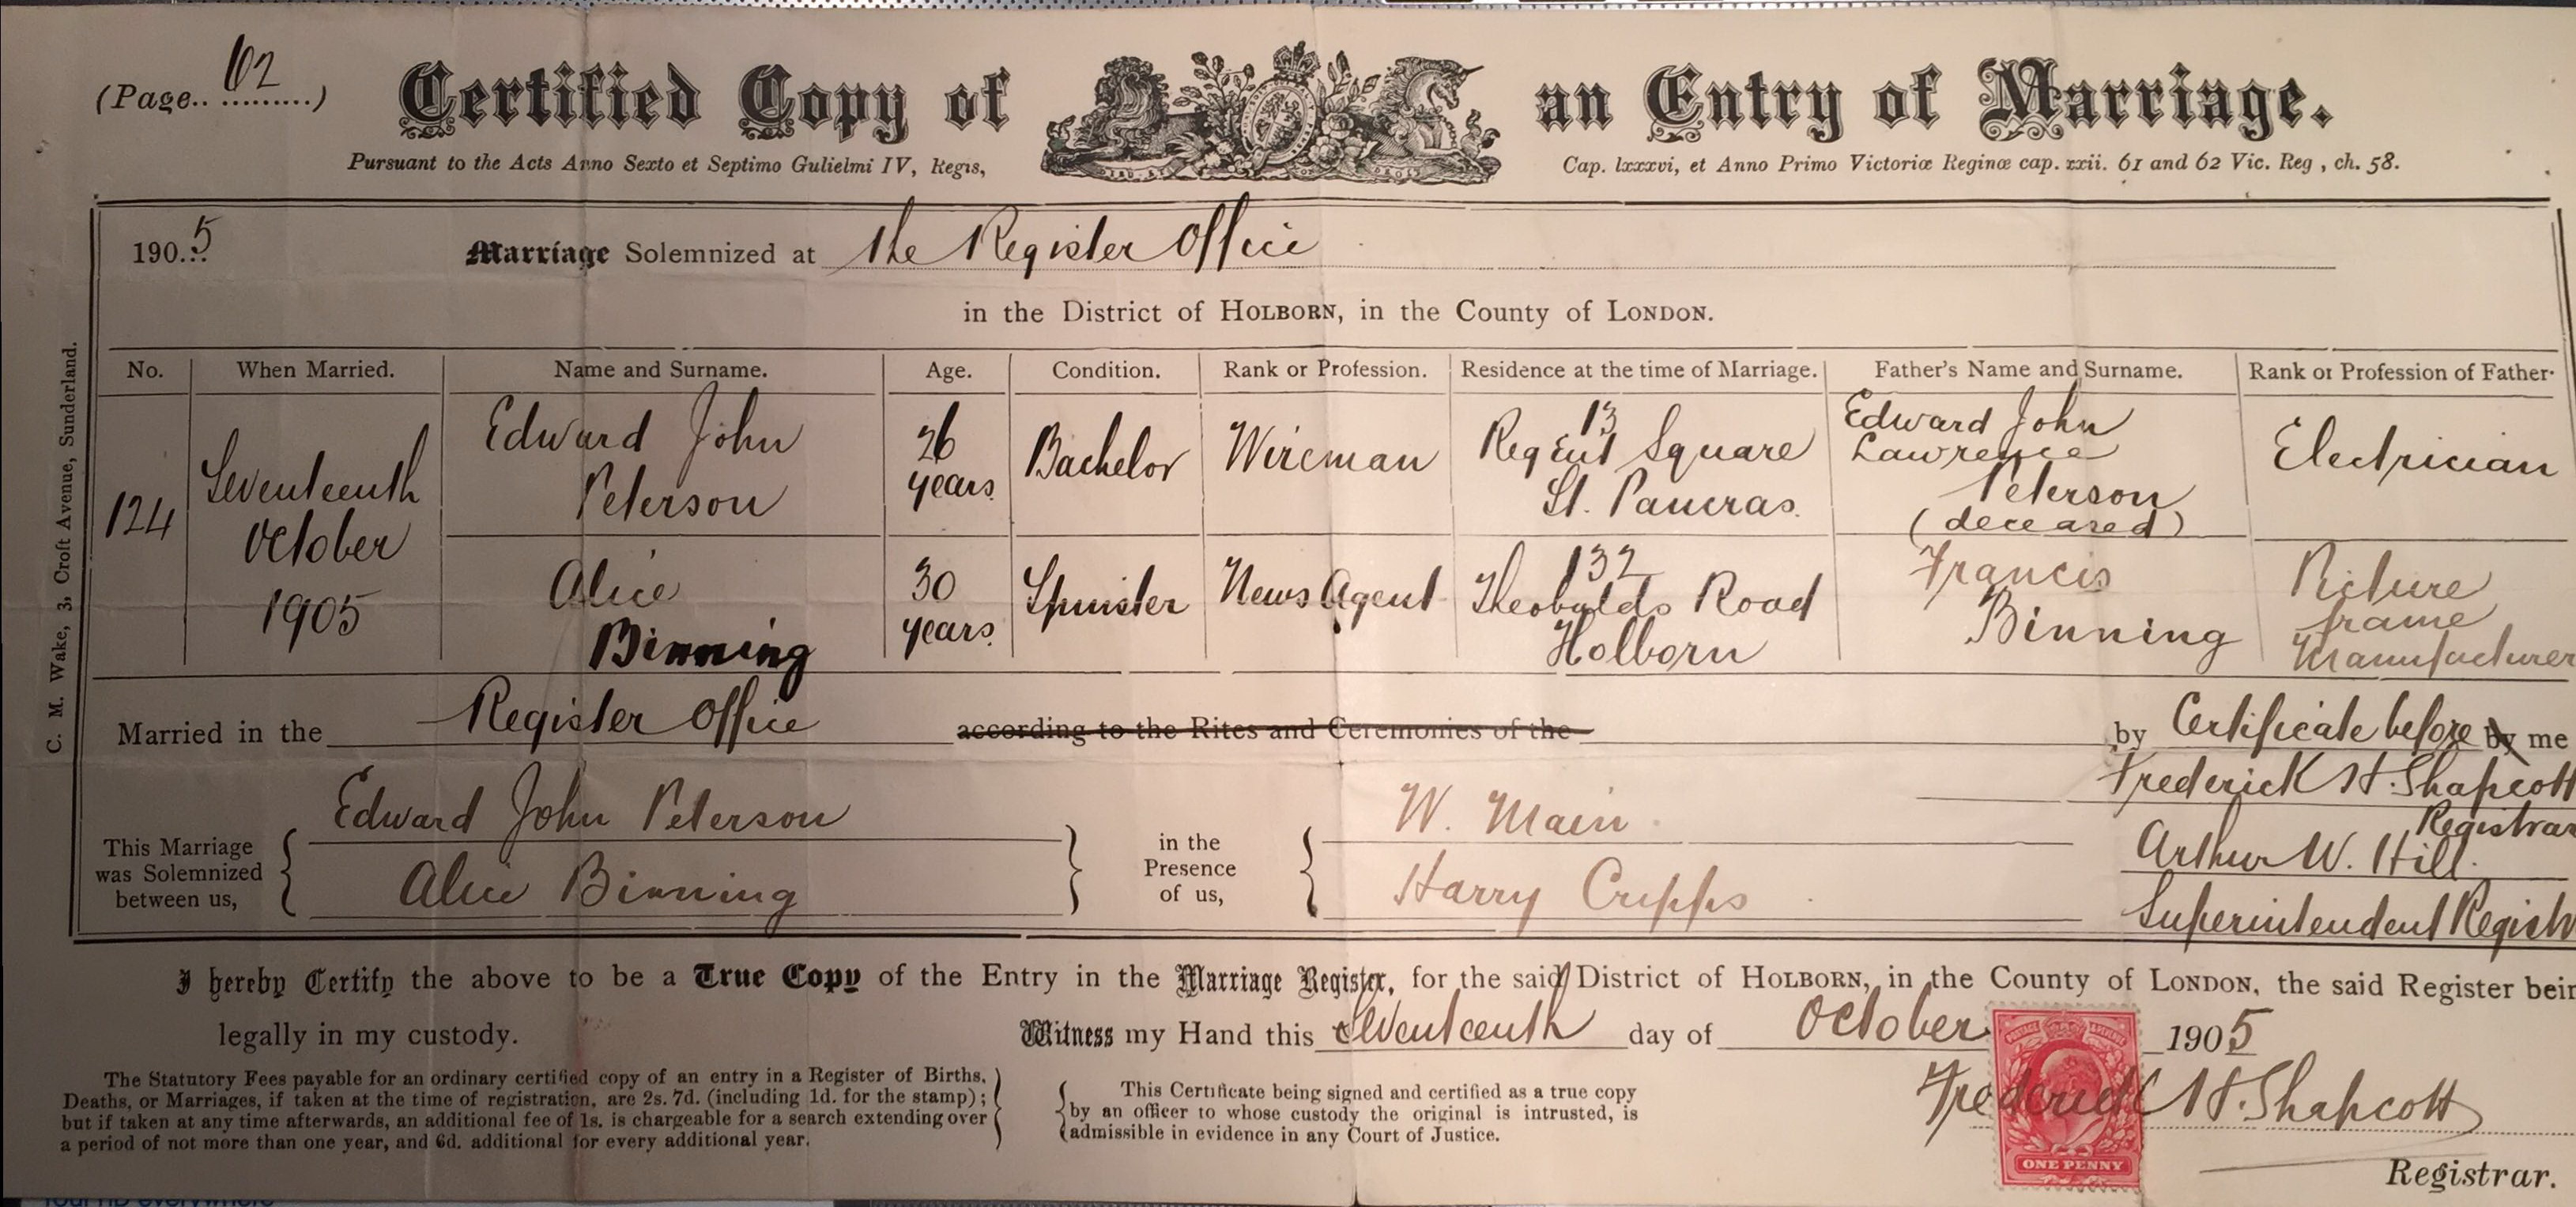 (Page.. 62 .........)
Certified Copy of an Entry of Marriage.
Pursuant to the Acts Anno Sexto et Septimo Gulielmi IV, Regis, Cap. lxxxvi, et Anno Primo Victoriæ Reginæ cap. xxii. 61 and 62 Vic. Reg , ch. 58.
1905 Marriage Solemnized at The Register Office
in the District of HOLBORN, in the County of LONDON.
No. When Married. Name and Surname. Age. Condition. Rank or Profession. Residence at the time of Marriage. Father's Name and Surname. Rank or Profession of Father.
124
Seventeenth
October
1905
Edward John
Peterson
26
years
Bachelor
Wireman
13
Regent Square
St. Pancras.
Edward John
Lawrence
Peterson
(deceased)
Electrician
Alice
Binning
30
years.
Spinster
News Agent
132
Theobalds Road
Holborn
Francis
Binning
Picture
frame
Manufacturer
Married in the Register Office according to the Rites and Ceremonies of the by Certificate before by me
Frederick H. Shapcott
Registrar
Arthur W. Hill.
Superintendent Registr
This Marriage
was Solemnized
between us,
Edward John Peterson
Alice Binning
in the
Presence
of us,
W. Main
Harry Cripps
I hereby Certify the above to be a True Copy of the Entry in the Marriage Register, for the said District of HOLBORN, in the County of LONDON, the said Register bein
legally in my custody.
Witness my Hand this Seventeenth day of October 1905
The Statutory Fees payable for an ordinary certified copy of an entry in a Register of Births,
Deaths, or Marriages, if taken at the time of registration, are 2s. 7d. (including 1d. for the stamp);
but if taken at any time afterwards, an additional fee of 1s. is chargeable for a search extending over
a period of not more than one year, and 6d. additional for every additional year.
This Certificate being signed and certified as a true copy
by an officer to whose custody the original is intrusted, is
admissible in evidence in any Court of Justice.
Frederick H. Shapcott
Registrar.
POSTAGE & REVENUE
ONE PENNY
C. M. Wake, 3, Croft Avenue, Sunderland.